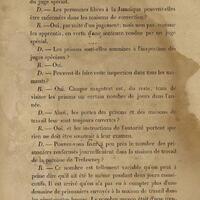 du juge spécial.
D. — Les personnes libres à la Jamaïque peuvent-elles
être enfermées dans les maisons de correction?
R. — Oui, par suite d'un jugement; mais non pas, comme
les apprentis, en vertu d'une sentence rendue par un juge
spécial.
D. — Les prisons sont-elles soumises à l'inspection des
juges spéciaux?
R. — Oui.
D. — Peuvent-ils faire cette inspection dans tous les mo-
ments?
R. — Oui. Chaque magistrat est, du reste, tenu de
visiter les prisons un certain nombre de jours dans l'an-
née.
D. — Ainsi, les portes des prisons et des maisons de
travail leur sont toujours ouvertes?
R. — Oui, et les instructions de l'autorité portent que
rien ne doit être soustrait à leur examen.
D. — Pouvez-vous fixer à peu près le nombre des pri-
sonniers renfermés journellement dans la maison de travail
de la paroisse de Trelawney?
R. — Ce nombre est tellement variable qu'on peut à
peine dire quel il a été le même pendant deux jours consé-
cutifs. Il est arrivé qu'on n'a pas eu à compter plus d'une
douzaine de prisonniers envoyés à la maison de travail dans